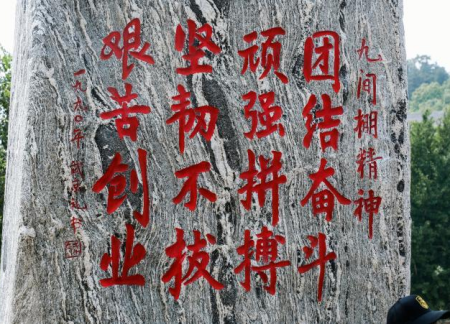 九间棚精神
团结奋斗
顽强拼搏
坚韧不拔
艰苦创业
一九九〇年